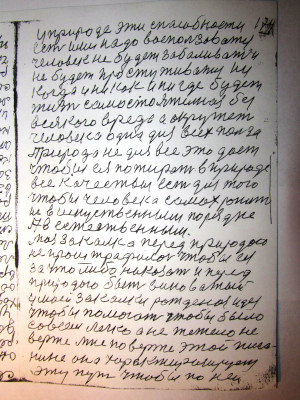 у природе эти способности
есть ими надо воспользоват
человек не будет заболеват и
не будет простуживат ни
когда и никак и нигде будет
жит самостоятелно без
всякого вреда а окружает
человека одна для всех польза
Природа не для все это дает
чтобы ея потират в природе
все качества ест для того
чтобы человека самохранит
не в искуственным порядке
А в естественным.
Моя закалка перед природою
не проиграл чтобы ея
за что либо наказат и перед
природою быт виноватый
у моей закалки рожденая идея
чтобы помогат чтобы было
совсем легко а не тежело не
верте мне поверте этой
она характиризирует
эту пут чтобы по ней